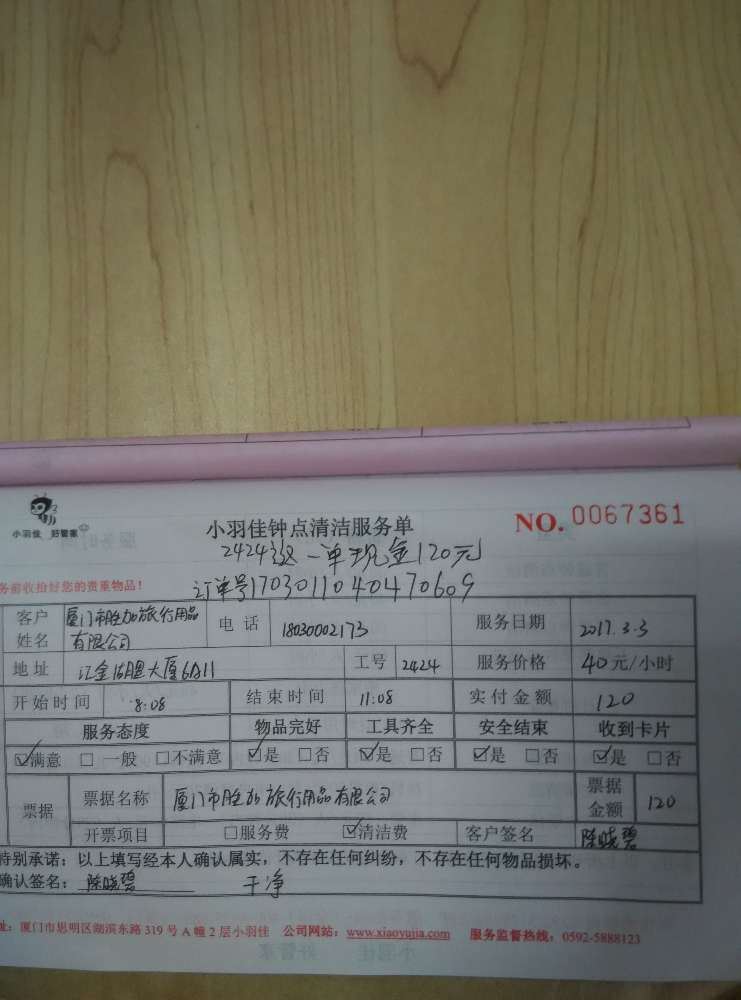 小羽佳 好管家
小羽佳钟点清洁服务单
NO. 0067361
2424 一单现金120元
务前收拾好您的贵重物品!
订单号1703011040470609
客户姓名 厦门市胜加旅行用品有限公司 电话 18030002173 服务日期 2017.3.3
地址 汇金 大厦 工号 2424 服务价格 40元/小时
开始时间 8:08 结束时间 11:08 实付金额 120
服务态度 物品完好 工具齐全 安全结束 收到卡片
☑满意 □一般 □不满意 ☑是 □否 ☑是 □否 ☑是 □否 ☑是 □否
票据 票据名称 厦门市胜加旅行用品有限公司 票据金额 120
开票项目 □服务费 ☑清洁费 客户签名 陈晓碧
特别承诺:以上填写经本人确认属实,不存在任何纠纷,不存在任何物品损坏。
确认签名: 陈晓碧 干净
址:厦门市思明区湖滨东路319号A幢2层小羽佳 公司网站:www.xiaoyujia.com 服务监督热线:0592-5888123